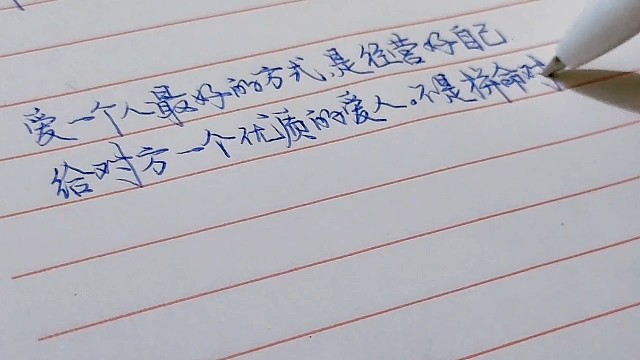 爱一个人最好的方式,是经营好自己
给对方一个优质的爱人。不是拼命对